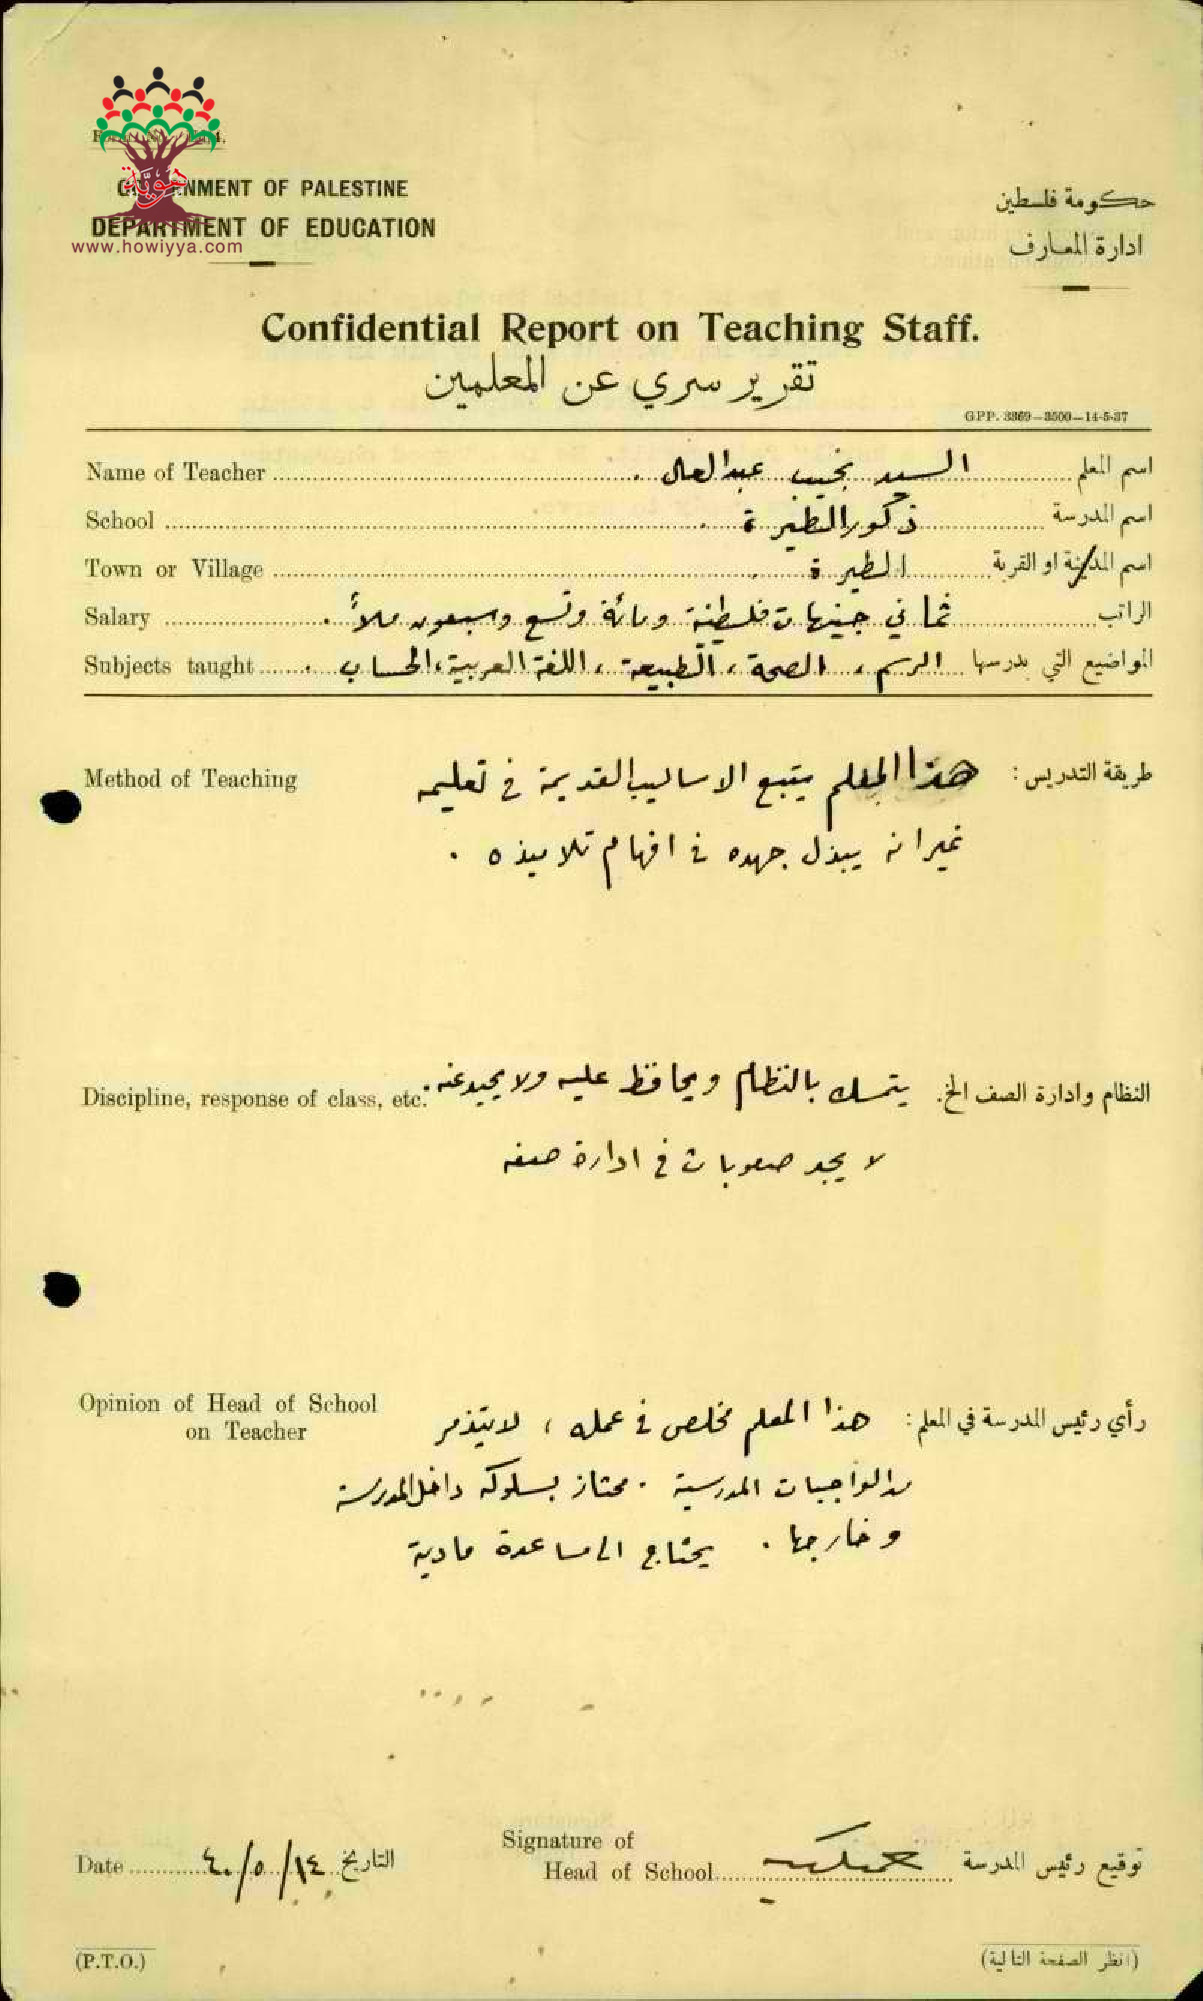 GOVERNMENT OF PALESTINE
DEPARTMENT OF EDUCATION
هوية
www.howiyya.com
حكومة فلسطين
ادارة المعارف
Confidential Report on Teaching Staff.
تقرير سري عن المعلمين
GPP. 3369—3500—14-5-37
Name of Teacher السيد نجيب عبدالعال . اسم المعلم
School ذكور الطيرة . اسم المدرسة
Town or Village الطيرة . اسم المدينة او القرية
Salary ثماني جنيهات فلسطينة ومائة وتسع وسبعون ملاً . الراتب
Subjects taught الرسم ، الصحة ، الطبيعة ، اللغة العربية ، الحساب . المواضيع التي يدرسها
Method of Teaching هذا المعلم يتبع الاساليب القديمة في تعليمه طريقة التدريس :
غير انه يبذل جهده في افهام تلاميذه .
Discipline, response of class, etc. يتمسك بالنظام ويحافظ عليه ولا يحيد عنه . النظام وادارة الصف الخ.
لا يجد صعوبات في ادارة صفه
Opinion of Head of School
on Teacher
رأي رئيس المدرسة في المعلم : هذا المعلم مخلص في عمله ، لا يتذمر
من الواجبات المدرسية . ممتاز بسلوكه داخل المدرسة
وخارجها . يحتاج الى مساعدة مادية
Signature of
Head of School توقيع رئيس المدرسة
Date ١٤/٥/٤٠ التاريخ
(P.T.O.)
(انظر الصفحة التالية)